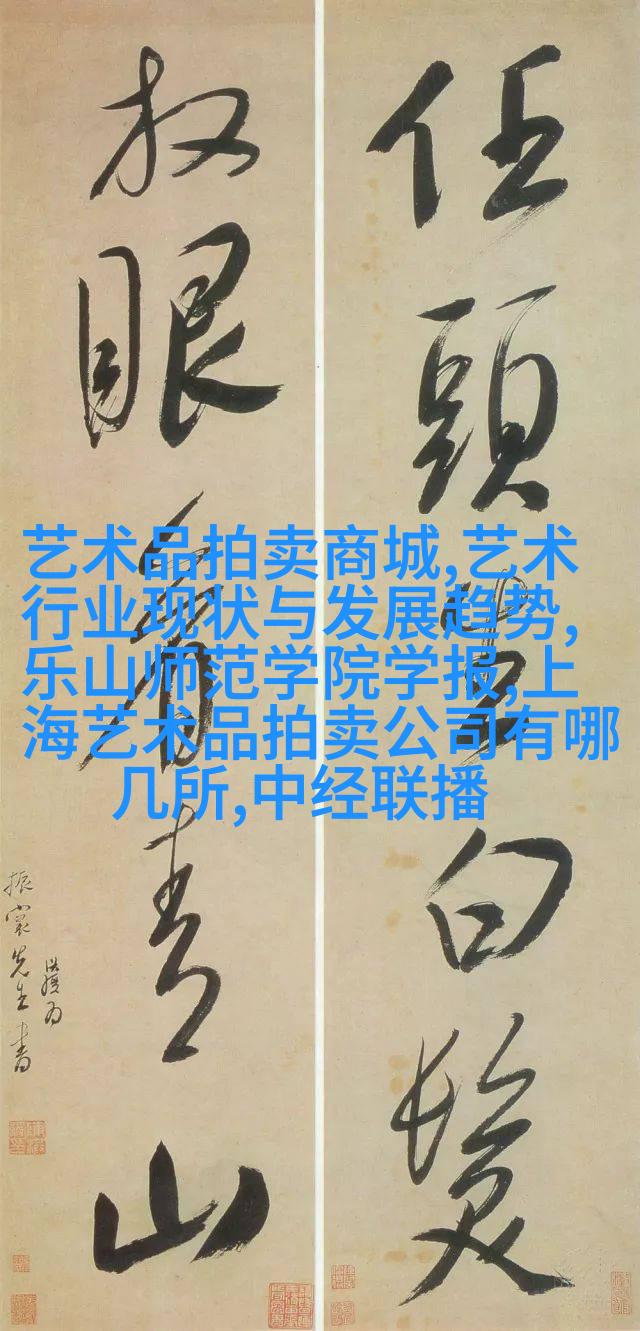 任頭生白髮
放眼看青山
振裳先生書
艺术品拍卖商城,艺术
行业现状与发展趋势,
乐山师范学院学报,上
海艺术品拍卖公司有哪
几所,中经联播